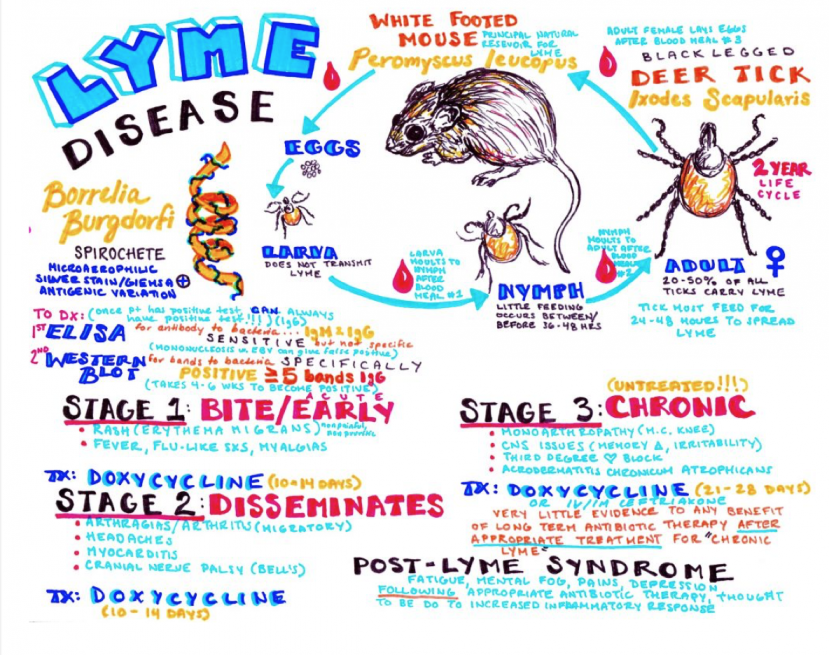 LYME
DISEASE
WHITE FOOTED
MOUSE
PRINCIPAL NATURAL
RESEVOIR FOR
LYME
Peromyscus leucopus
ADULT FEMALE LAYS EGGS
AFTER BLOOD MEAL #3
BLACK LEGGED
DEER TICK
Ixodes Scapularis
2 YEAR
LIFE
CYCLE
EGGS
LARVA
DOES NOT TRANSMIT
LYME
LARVA
MOULTS TO
NYMPH
AFTER
BLOOD
MEAL #1
NYMPH
LITTLE FEEDING
OCCURS BETWEEN/
BEFORE 36-48 HRS
NYMPH
MOULTS TO
ADULT AFTER
BLOOD
MEAL
#2
ADULT ♀
20-50% OF ALL
TICKS CARRY LYME
TICK MUST FEED FOR
24-48 HOURS TO SPREAD
LYME
Borrelia
Burgdorfi
SPIROCHETE
MICROAEROPHILIC
SILVER STAIN/GIEMSA ⊕
ANTIGENIC VARIATION
TO DX: (once pt has positive test, CAN ALWAYS
have positive test!!!) (IgG)
1ST ELISA for antibody to bacteria... IgM & IgG
SENSITIVE but not specific
(MONONUCLEOSIS w. EBV can give false positive)
2ND WESTERN BLOT for bands to bacteria SPECIFICALLY
POSITIVE ≥5 bands IgG
(TAKES 4-6 WKS TO BECOME POSITIVE)
ACUTE
STAGE 1: BITE/EARLY
• RASH (ERYTHEMA MIGRANS) non painful, non pruritic
• FEVER, FLU-LIKE SXS, MYALGIAS
TX: DOXYCYCLINE (10-14 DAYS)
STAGE 2: DISSEMINATES
• ARTHRAGIAS/ARTHRITIS (MIGRATORY)
• HEADACHES
• MYOCARDITIS
• CRANIAL NERVE PALSY (BELL'S)
TX: DOXYCYCLINE
(10-14 DAYS)
(UNTREATED!!!)
STAGE 3: CHRONIC
• MONOARTHROPATHY (M.C. KNEE)
• CNS ISSUES (MEMORY Δ, IRRITABILITY)
• THIRD DEGREE ♡ BLOCK
• ACRODERMATITIS CHRONICUM ATROPHICANS
TX: DOXYCYCLINE (21-28 DAYS)
OR IV/IM CEFTRIAXONE
VERY LITTLE EVIDENCE TO ANY BENEFIT
OF LONG TERM ANTIBIOTIC THERAPY AFTER
APPROPRIATE TREATMENT FOR "CHRONIC
LYME"
POST-LYME SYNDROME
FATIGUE, MENTAL FOG, PAINS, DEPRESSION
FOLLOWING APPROPRIATE ANTIBIOTIC THERAPY, THOUGHT
TO BE DO TO INCREASED INFLAMMATORY RESPONSE